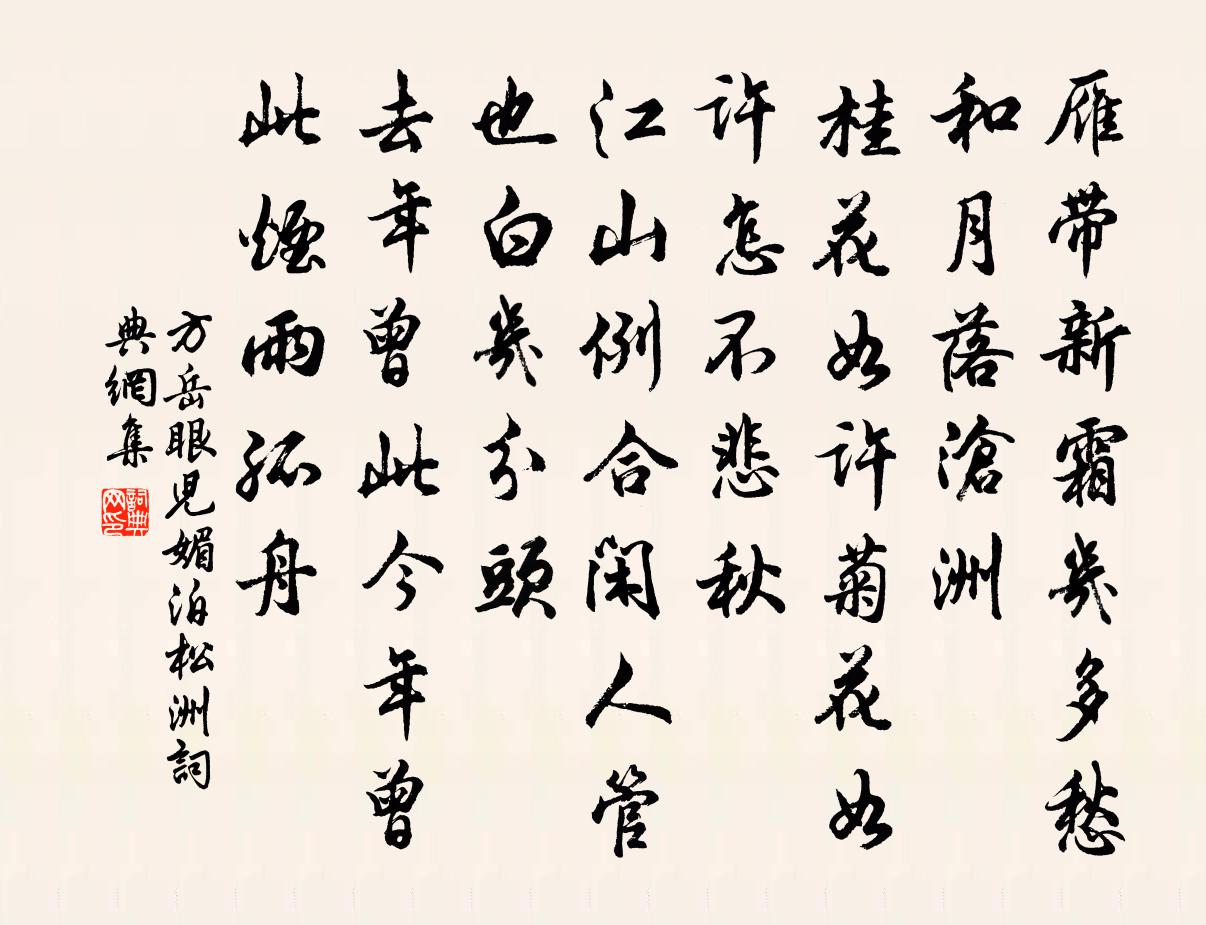 雁带新霜幾多愁
和月落滄洲
桂花如许菊花如
许怎不悲秋
江山例合闲人管
也白幾分頭
去年曾此今年曾
此煙雨孤舟
方岳眼児媚泊松洲詞
典網集
詞典网印